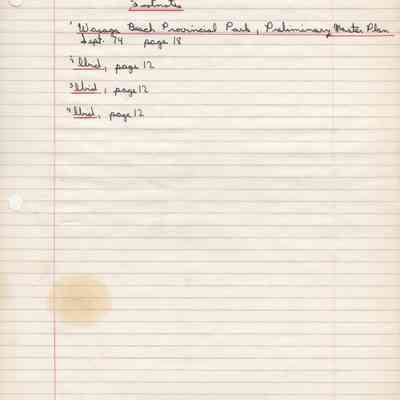 Footnotes
1 Wasaga Beach Provincial Park, Preliminary Master Plan
Sept. 74 page 18
2 Ibid, page 12
3 Ibid, page 12
4 Ibid, page 12